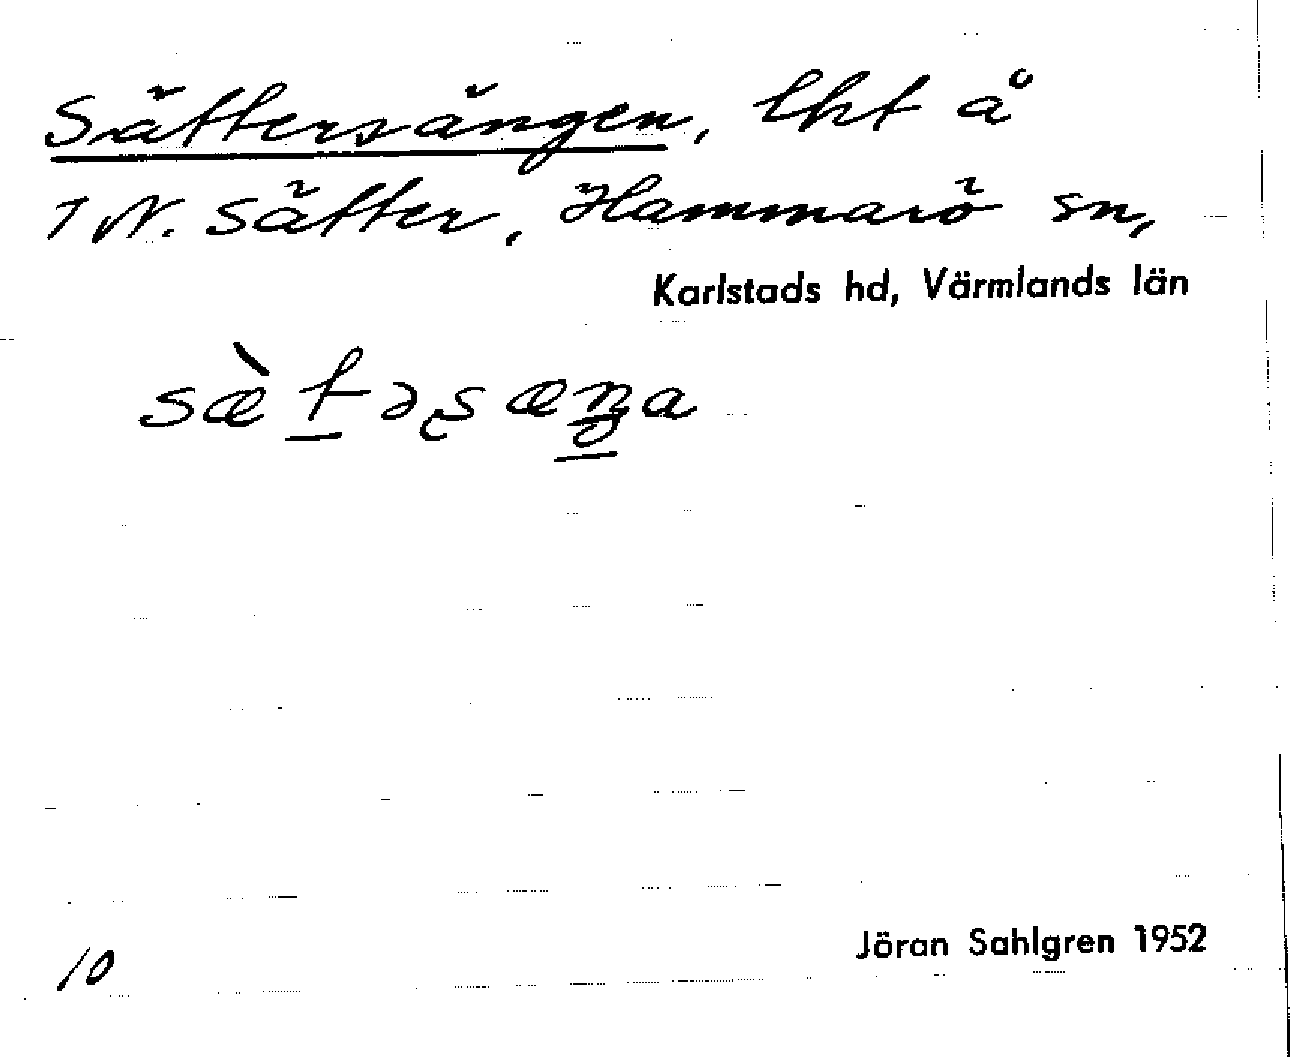 Sättersängen, lht å
1 N. Sätter, Hammarö sn,
Karlstads hd, Värmlands län
sæ̀t̠əʂæŋ̠a
10
Jöran Sahlgren 1952